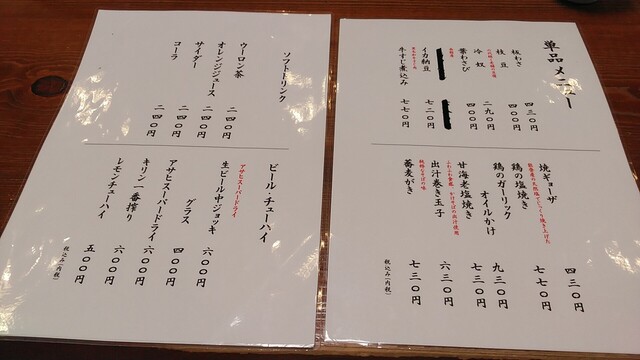 単品メニュー
板わさ 四三〇円
枝豆 四〇〇円
冷奴 二九〇円
葉わさび 四〇〇円
イカ納豆 七二〇円
牛すじ煮込み 七七〇円
焼ギョーザ 四三〇円
鶏の塩焼き 七七〇円
鶏のガーリックオイルかけ 九三〇円
甘海老塩焼き 七三〇円
出汁巻き玉子 六三〇円
蕎麦がき 七三〇円
税込み(内税)
ソフトドリンク
ウーロン茶 二四〇円
オレンジジュース 二四〇円
サイダー 二四〇円
コーラ 二四〇円
ビール・チューハイ
アサヒスーパードライ
生ビール中ジョッキ 六〇〇円
グラス 四〇〇円
アサヒスーパードライ 六〇〇円
キリン一番搾り 六〇〇円
レモンチューハイ 五〇〇円
税込み(内税)